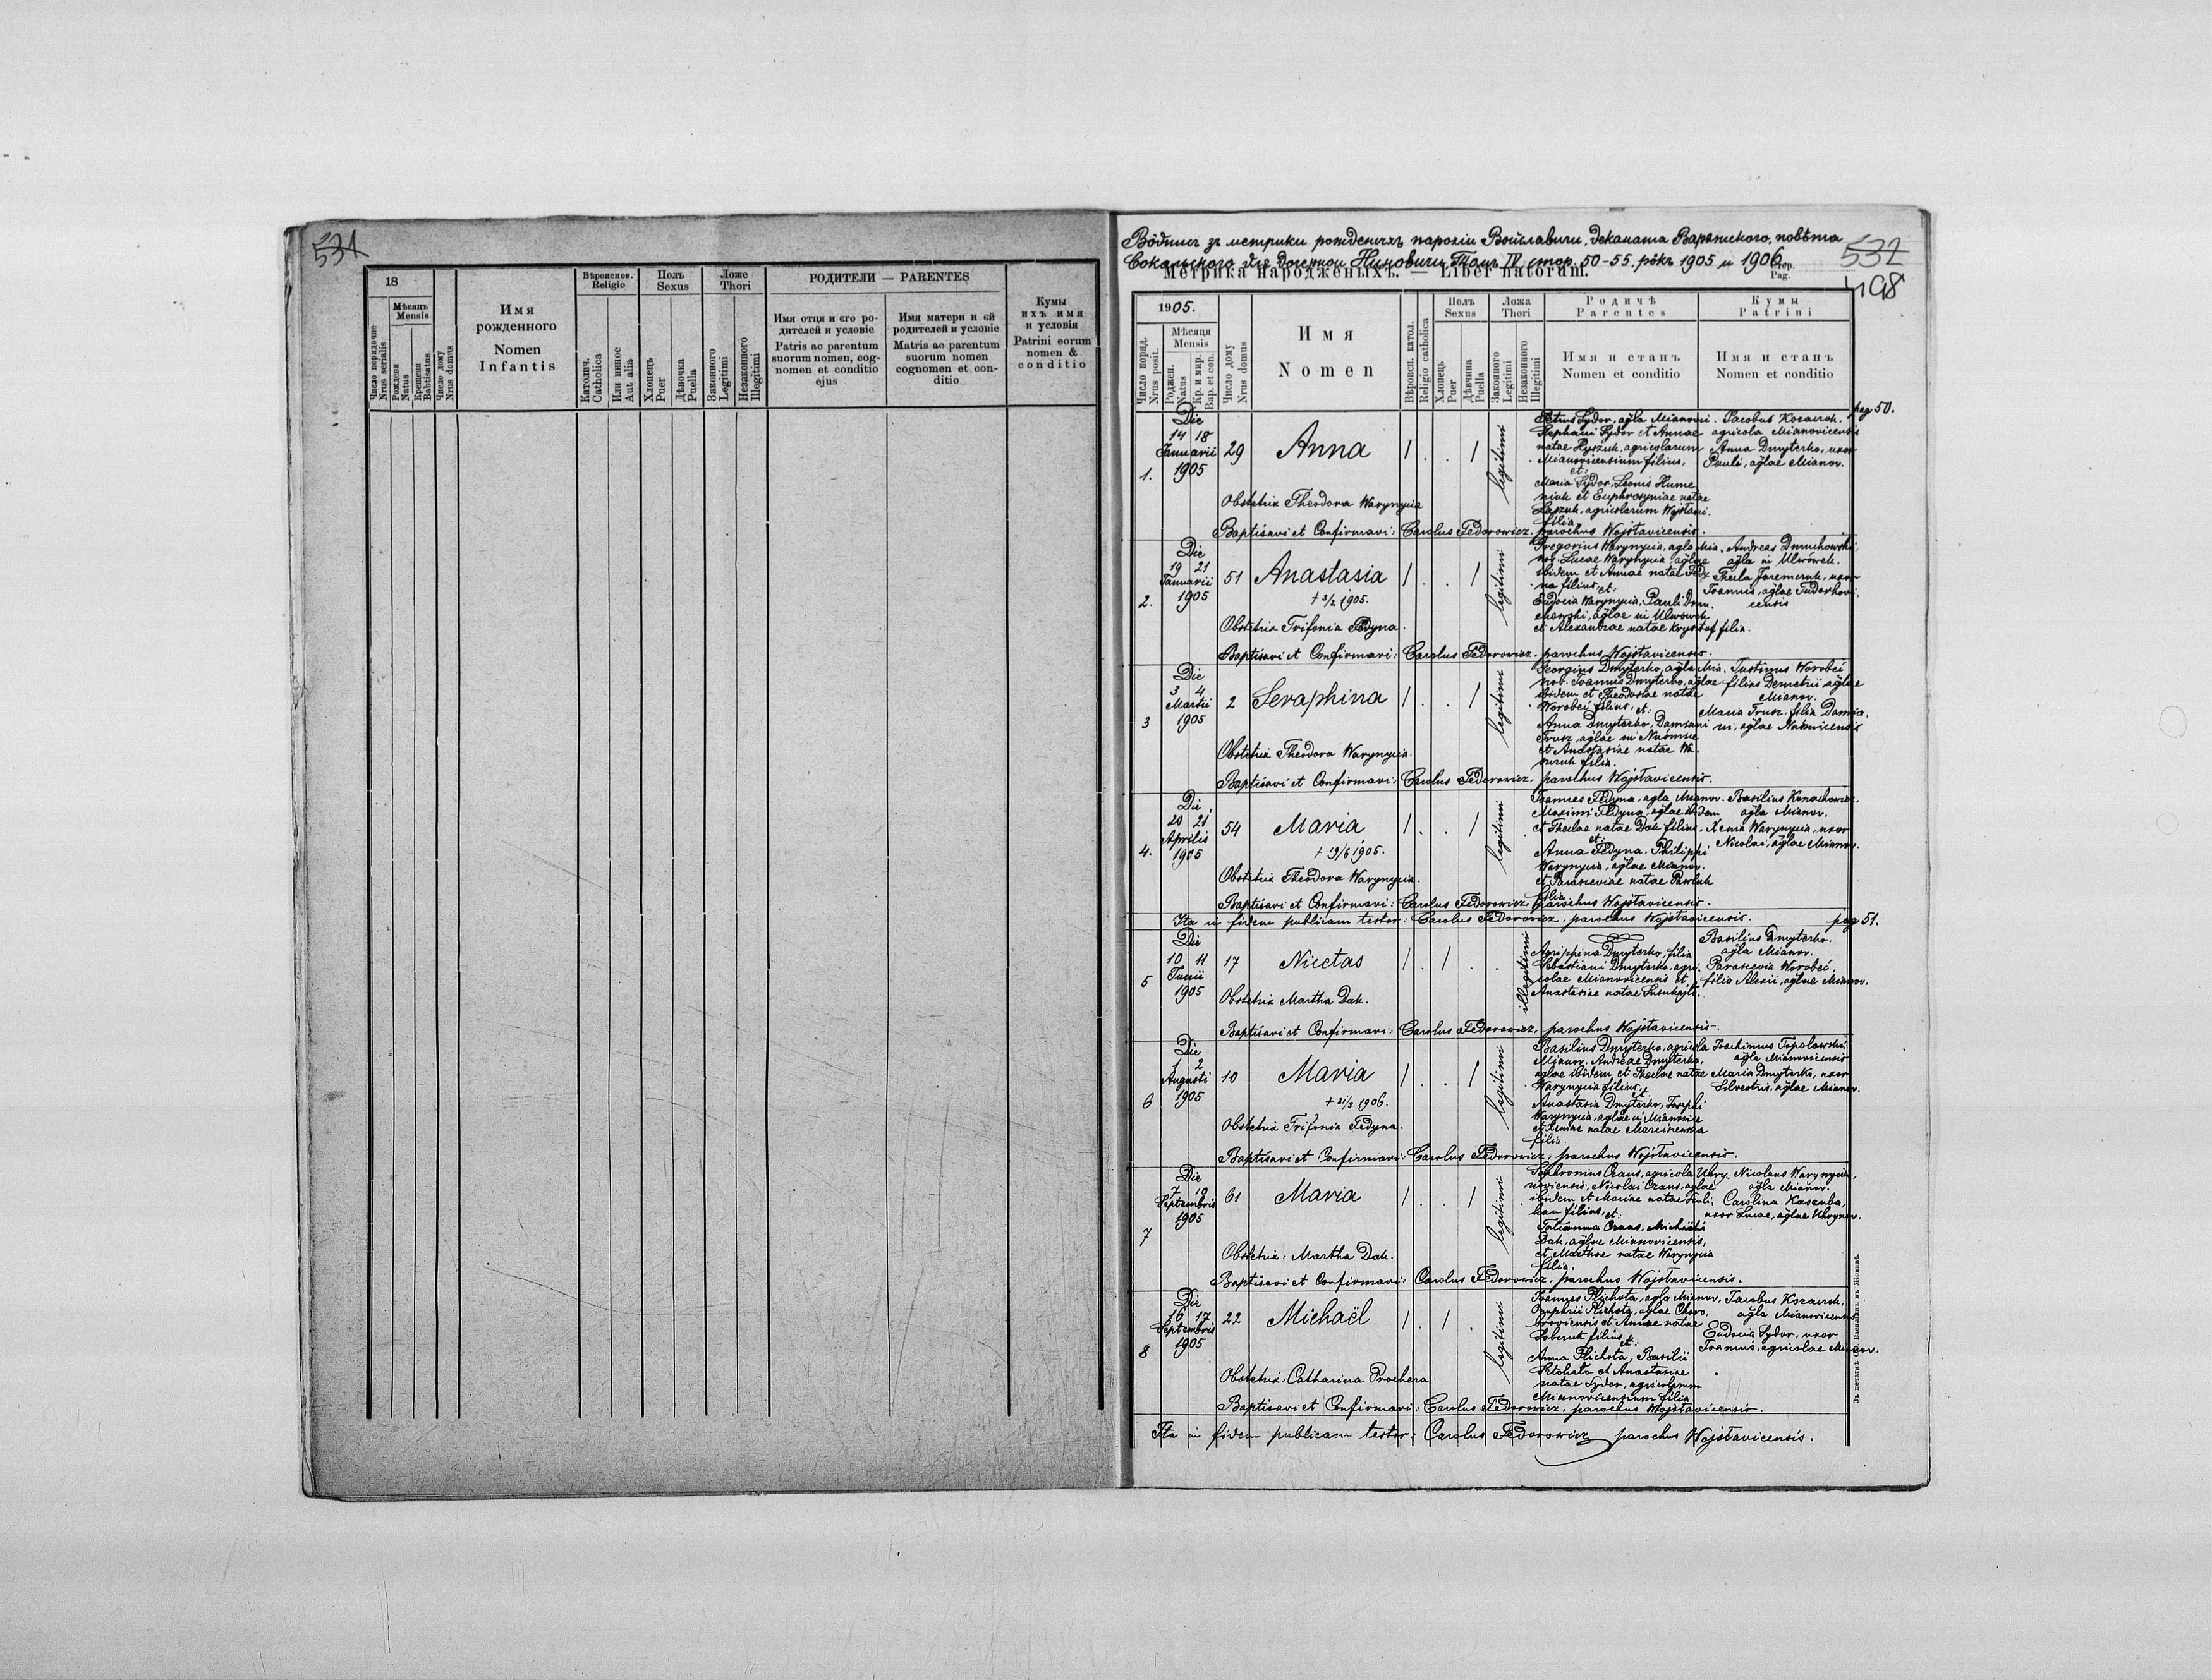 531
18
Мѣсяць
Mensis
Число порядочне
Nrus serialis
Рожденя
Natus
Крещеня
Babtisatus
Число дому
Nrus domus
Имя
рожденного
Nomen
Infantis
Вѣроиспов.
Religio
Католич.
Catholica
Или инное
Aut alia
Полъ
Sexus
Хлопець
Puer
Дѣвочка
Puella
Ложе
Thori
Законного
Legitimi
Незаконного
Illegitimi
РОДИТЕЛИ — PARENTES
Имя отця и єго ро-
дителей и условіе
Patris ac parentum
suorum nomen, cog-
nomen et conditio
ejus
Имя матери и єй
родителей и условіе
Matris ac parentum
suorum nomen
cognomen et con-
ditio
Кумы
ихъ имя
и условія
Patrini eorum
nomen &
conditio
Вôдпись зъ метрики рожденихъ парохіи Войславичи, деканата Варяжского, повѣта
Сокальского для Томъ IV стор. 50-55. рôкъ 1905 и 1906.
532
Метрика народженыхъ. — Liber natorum.
Стор.
Pag.
498
1905.
Число поряд.
Nrus posit.
Мѣсяця
Mensis
Роджен.
Natus
Кр. и мир.
Bap. et con.
Число дому
Nrus domus
Имя
Nomen
Вѣроисп. катол.
Religio catholica
Полъ
Sexus
Хлопець
Puer
Дѣвчина
Puella
Ложа
Thori
Законного
Legitimi
Незаконного
Illegitimi
Родичѣ
Parentes
Имя и станъ
Nomen et conditio
Кумы
Patrini
Имя и станъ
Nomen et conditio
pag 50.
1.
Die
14 18
Januarii
1905
29
Anna
1 . . 1
legitimi
Petrus Sydor, agla Mianovi.
Stephani Sydor et Annae
natae Hyszuk, agricolarum
Mianovicensium filius,
et:
Maria Sydor, Leonis Hume
niuk et Euphrosyniae natae
Laszuk, agricolarum Wojslavi.
filia.
Jacobus Kozaczok,
agricola Mianovicensis
Anna Dmyterko, uxor
Pauli, aglae Mianov.
Obstetrix Theodora Warynycia
Baptisavi et Confirmavi: Carolus Fedorowicz, parochus Wojslavicensis.
2.
Die
19 21
Januarii
1905
51
Anastasia
+ 3/2 1905.
1 . . 1
legitimi
Gregorius Warynycia, agla Mia.
nov. Lucae Warynycia, aglae
ibidem et Annae natae Fedy
na filius, et:
Eudocia Warynycia, Pauli Dmu.
chowski, aglae in Ulwówek
et Alexandrae natae Krysztof filia.
Andreas Dmuchowski,
agla in Ulwówek.
Thecla Jaremczuk, uxor
Joannis, aglae Tudorkovi.
censis
Obstetrix Trifonia Fedyna.
Baptisavi et Confirmavi: Carolus Fedorowicz, parochus Wojslavicensis.
3
Die
3 4
Martii
1905
2
Seraphina
1 . . 1
legitimi
Georgius Dmyterko, agla Mia.
nov. Joannis Dmyterko, aglae
ibidem et Theodosiae natae
Worobec filius, et:
Anna Dmyterko, Damiani
Trusz, aglae in Nuśmice
et Anastasiae natae Ma
zuruk filia.
Justinus Worobec
filius Demetrii aglae
Mianov.
Maria Trusz, filia Damia.
ni, aglae
Obstetrix Theodora Warynycia.
Baptisavi et Confirmavi: Carolus Fedorowicz, parochus Wojslavicensis.
4.
Die
20 21
Aprilis
1905
54
Maria
+ 19/6 1905.
1 . . 1
legitimi
Joannes Fedyna, agla Mianov.
Maximi Fedyna, aglae ibidem
et Theclae natae Dak filius,
et:
Anna Fedyna, Philippi
Warynycia, aglae Mianov.
et Parasceviae natae Pawluk
filia.
Basilius Konachowicz,
agla Mianov.
Xenia Warynycia, uxor
Nicolai, aglae Mianov.
Obstetrix Theodora Warynycia.
Baptisavi et Confirmavi: Carolus Fedorowicz, parochus Wojslavicensis.
Ita in fidem publicam testor: Carolus Fedorowicz, parochus Wojslavicensis.
pag 51.
5
Die
10 11
Junii
1905
17
Nicetas
1 . 1 . .
illegitimi
Agrippina Dmyterko, filia
Sebastiani Dmyterko, agri.
colae Mianovicensis et
Anastasiae natae
Basilius Dmyterko,
agla Mianov.
Parascevia Worobec,
filia Alexii, aglae Mianov.
Obstetrix Martha Dak.
Baptisavi et Confirmavi: Carolus Fedorowicz, parochus Wojslavicensis.
6
Die
1 2
Augusti
1905
10
Maria
+ 21/3 1906.
1 . . 1
legitimi
Basilius Dmyterko, agricola
Mianov. Andreae Dmyterko,
aglae ibidem, et Theclae natae
Warynycia filius,
et
Anastasia Dmyterko, Josephi
Warynycia, aglae in Mianovice
et Xeniae natae
filia.
Joachimus Topolowski,
agla Mianovicensis
Maria Dmyterko, uxor
Silvestris, aglae Mianov.
Obstetrix Trifonia Fedyna.
Baptisavi et Confirmavi: Carolus Fedorowicz, parochus Wojslavicensis.
7
Die
7 10
Septembris
1905
61
Maria
1 . . 1
legitimi
Sophronius Ozaus, agricola Uhry.
noviensis, Nicolai Ozaus, aglae
ibidem et Mariae natae
filius, et:
Tatianna Ozaus, Michaeli
Dak, aglae Mianovicensis,
et Marthae natae Warynycia
filia.
Nicolaus Warynycia,
agla Mianov.
Carolina Kasenba,
uxor Lucae, aglae Uhrynov.
Obstetrix: Martha Dak.
Baptisavi et Confirmavi: Carolus Fedorowicz, parochus Wojslavicensis.
8
Die
16 17
Septembris
1905
22
Michaël
1 . 1 .
legitimi
Joannes Plichota, agla Mianov,
Onuphrii Plichota, aglae Choro,
broviensis et Annae natae
Soberuk filius,
et:
Anna Plichota, Basilii
et Anastasiae
natae Sydor, agricolarum
Mianovicensium filia
Jacobus Kozaczok,
agla Mianovicensis
Eudocia Sydor, uxor
Joannis, agricolae Mianov.
Obstetrix: Catharina Prochera
Baptisavi et Confirmavi: Carolus Fedorowicz, parochus Wojslavicensis.
Ita in fidem publicam testor: Carolus Fedorowicz parochus Wojslavicensis.
Зъ печатнѣ О. Василіянъ въ Жовквѣ.